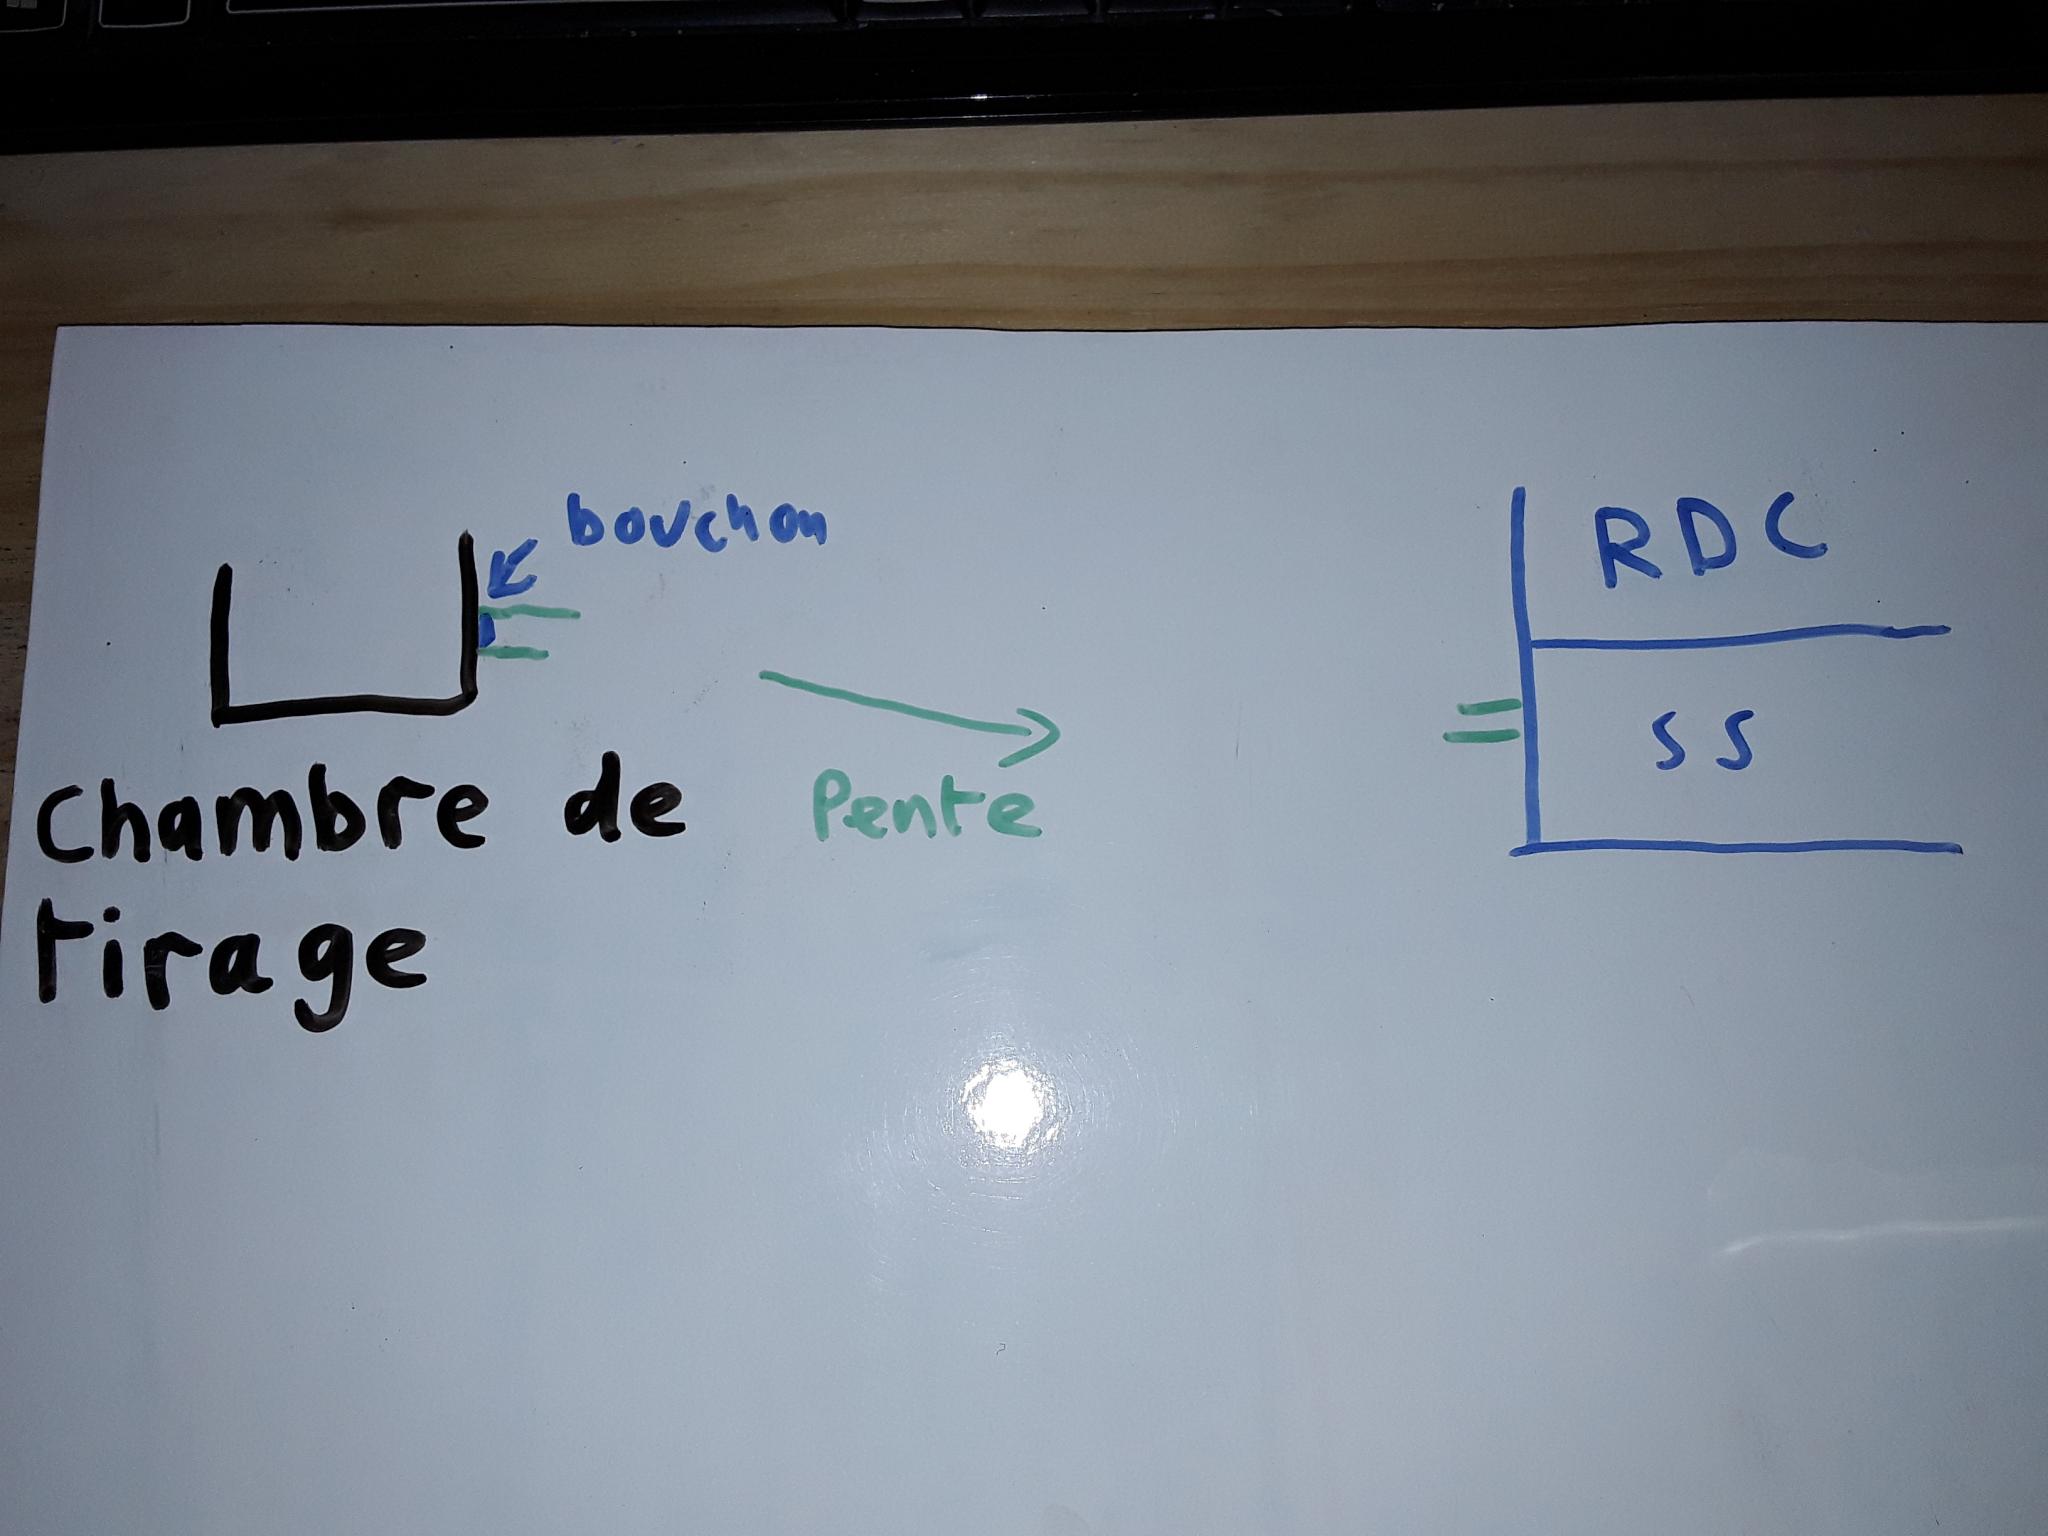 bouchon
RDC
SS
Pente
Chambre de
tirage